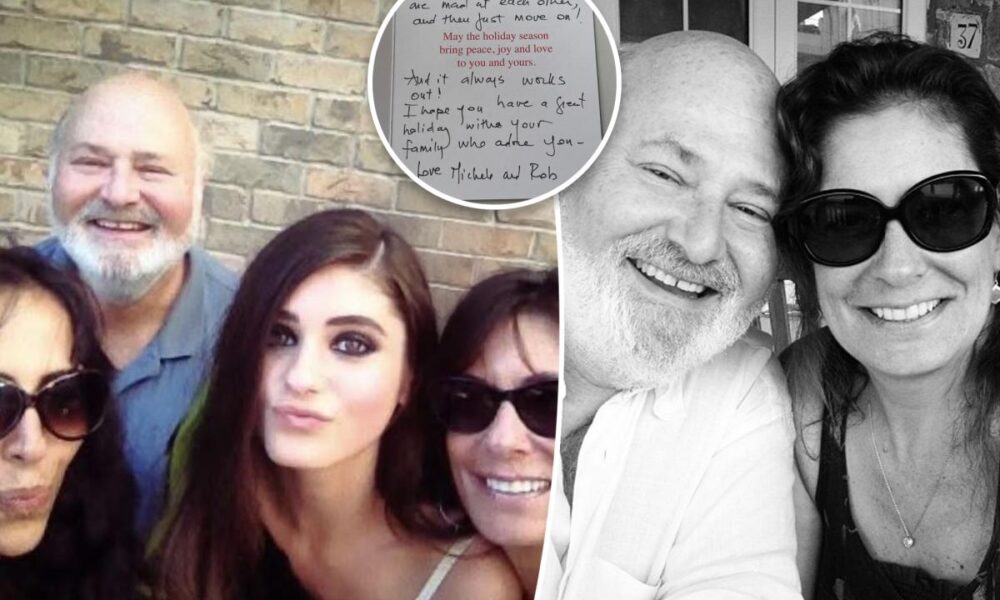 are mad at each other,
and then just move on!
May the holiday season
bring peace, joy and love
to you and yours.
And it always works
out!
I hope you have a great
holiday withe your
family who adore you –
Love Michele and Rob
37